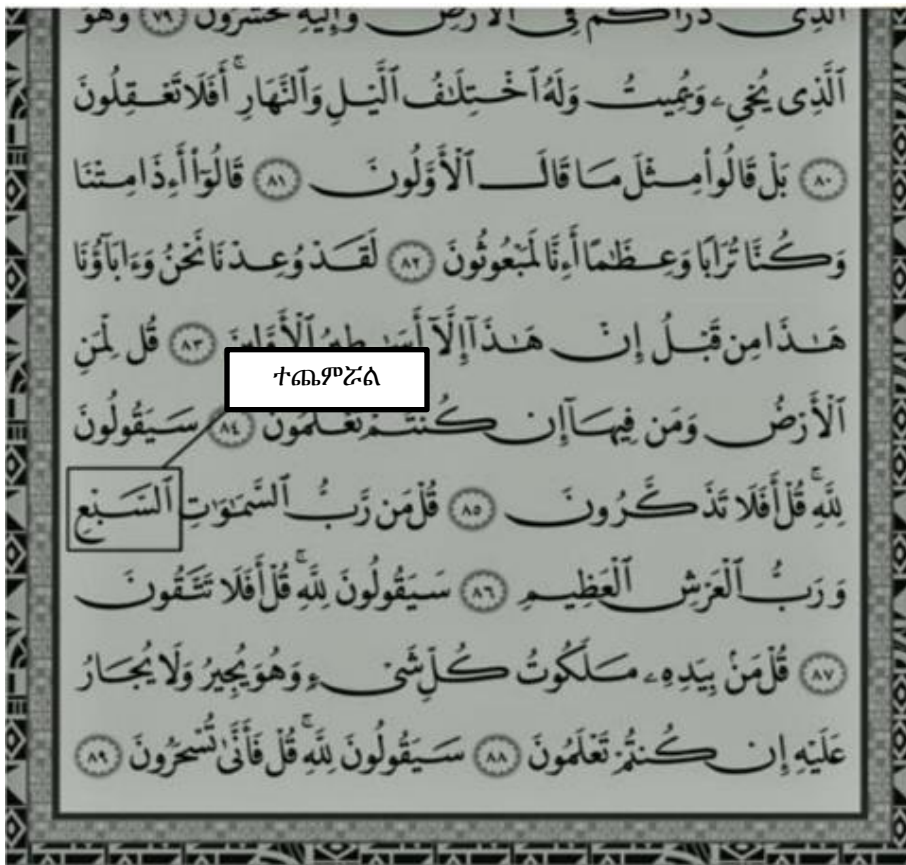 ٱلَّذِى ذَرَأَكُمْ فِى ٱلْأَرْضِ وَإِلَيْهِ تُحْشَرُونَ ٧٩ وَهُوَ
ٱلَّذِى يُحْىِۦ وَيُمِيتُ وَلَهُ ٱخْتِلَٰفُ ٱلَّيْلِ وَٱلنَّهَارِ ۚ أَفَلَا تَعْقِلُونَ
٨٠ بَلْ قَالُوا۟ مِثْلَ مَا قَالَ ٱلْأَوَّلُونَ ٨١ قَالُوٓا۟ أَءِذَا مِتْنَا
وَكُنَّا تُرَابًا وَعِظَٰمًا أَءِنَّا لَمَبْعُوثُونَ ٨٢ لَقَدْ وُعِدْنَا نَحْنُ وَءَابَآؤُنَا
هَٰذَا مِن قَبْلُ إِنْ هَٰذَآ إِلَّآ أَسَٰطِيرُ ٱلْأَوَّلِينَ ٨٣ قُل لِّمَنِ
ተጨምሯል
ٱلْأَرْضُ وَمَن فِيهَآ إِن كُنتُمْ تَعْلَمُونَ ٨٤ سَيَقُولُونَ
لِلَّهِ ۚ قُلْ أَفَلَا تَذَكَّرُونَ ٨٥ قُلْ مَن رَّبُّ ٱلسَّمَٰوَٰتِ ٱلسَّبْعِ
وَرَبُّ ٱلْعَرْشِ ٱلْعَظِيمِ ٨٦ سَيَقُولُونَ لِلَّهِ ۚ قُلْ أَفَلَا تَتَّقُونَ
٨٧ قُلْ مَنۢ بِيَدِهِۦ مَلَكُوتُ كُلِّ شَىْءٍ وَهُوَ يُجِيرُ وَلَا يُجَارُ
عَلَيْهِ إِن كُنتُمْ تَعْلَمُونَ ٨٨ سَيَقُولُونَ لِلَّهِ ۚ قُلْ فَأَنَّىٰ تُسْحَرُونَ ٨٩